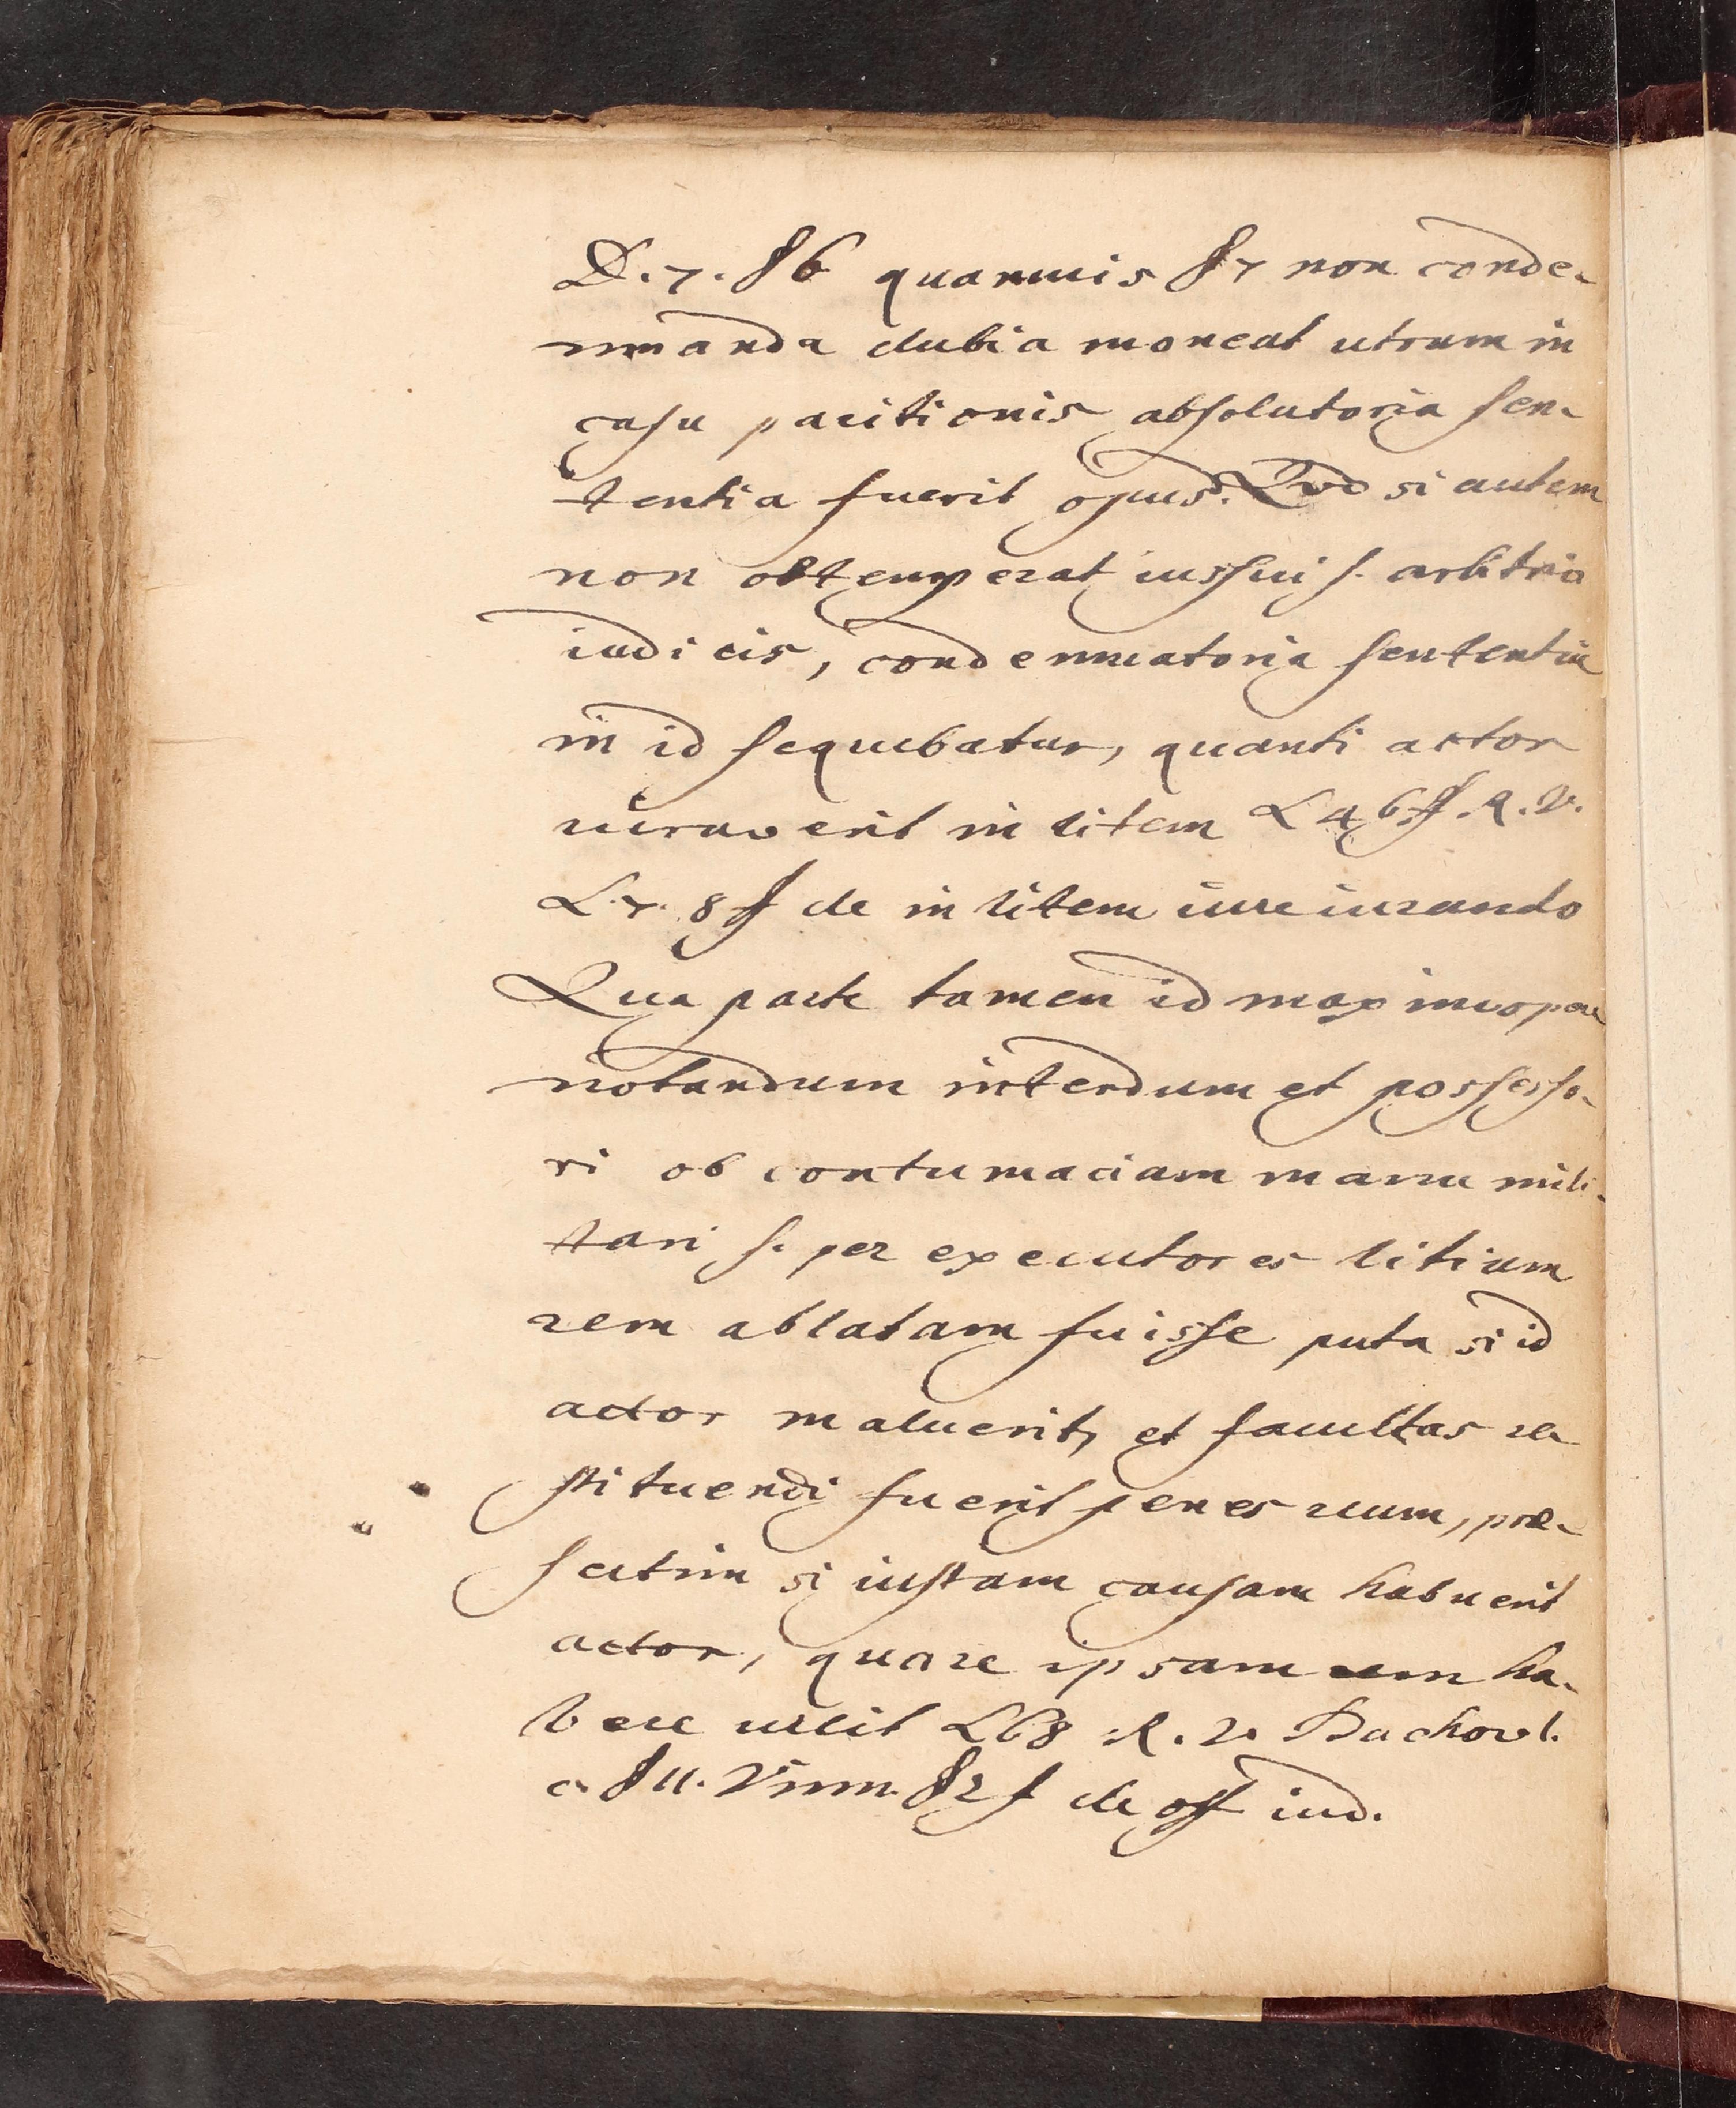 D. 7. §6 quamuis §7 non conde-
mnanda dubia moneat utrum in
casu paritionis absolutoria sen-
tentia fuerit opus. Quod si autem
non obtemperat iussui s. arbitrio
iudicis, condemnatoria sententia
in id sequebatur, quanti actor
iuraverit in litem L 46 ff. R. V.
L. 7. 8 ff de in litem iure iurando
Qua parte tamen id maximopere
notandum interdum et possesso-
ri ob contumaciam manu mili-
tari s. per executores litium
rem ablatam fuisse puta si id
actor maluerit, et facultas re
stituendi fuerit penes reum, præ-
sertim si iustam causam habuerit
actor, quare ipsam rem ha-
bere velit L 68 R. V. Bachov l.
c. § 11. Vinn. § 2 f de off iud.